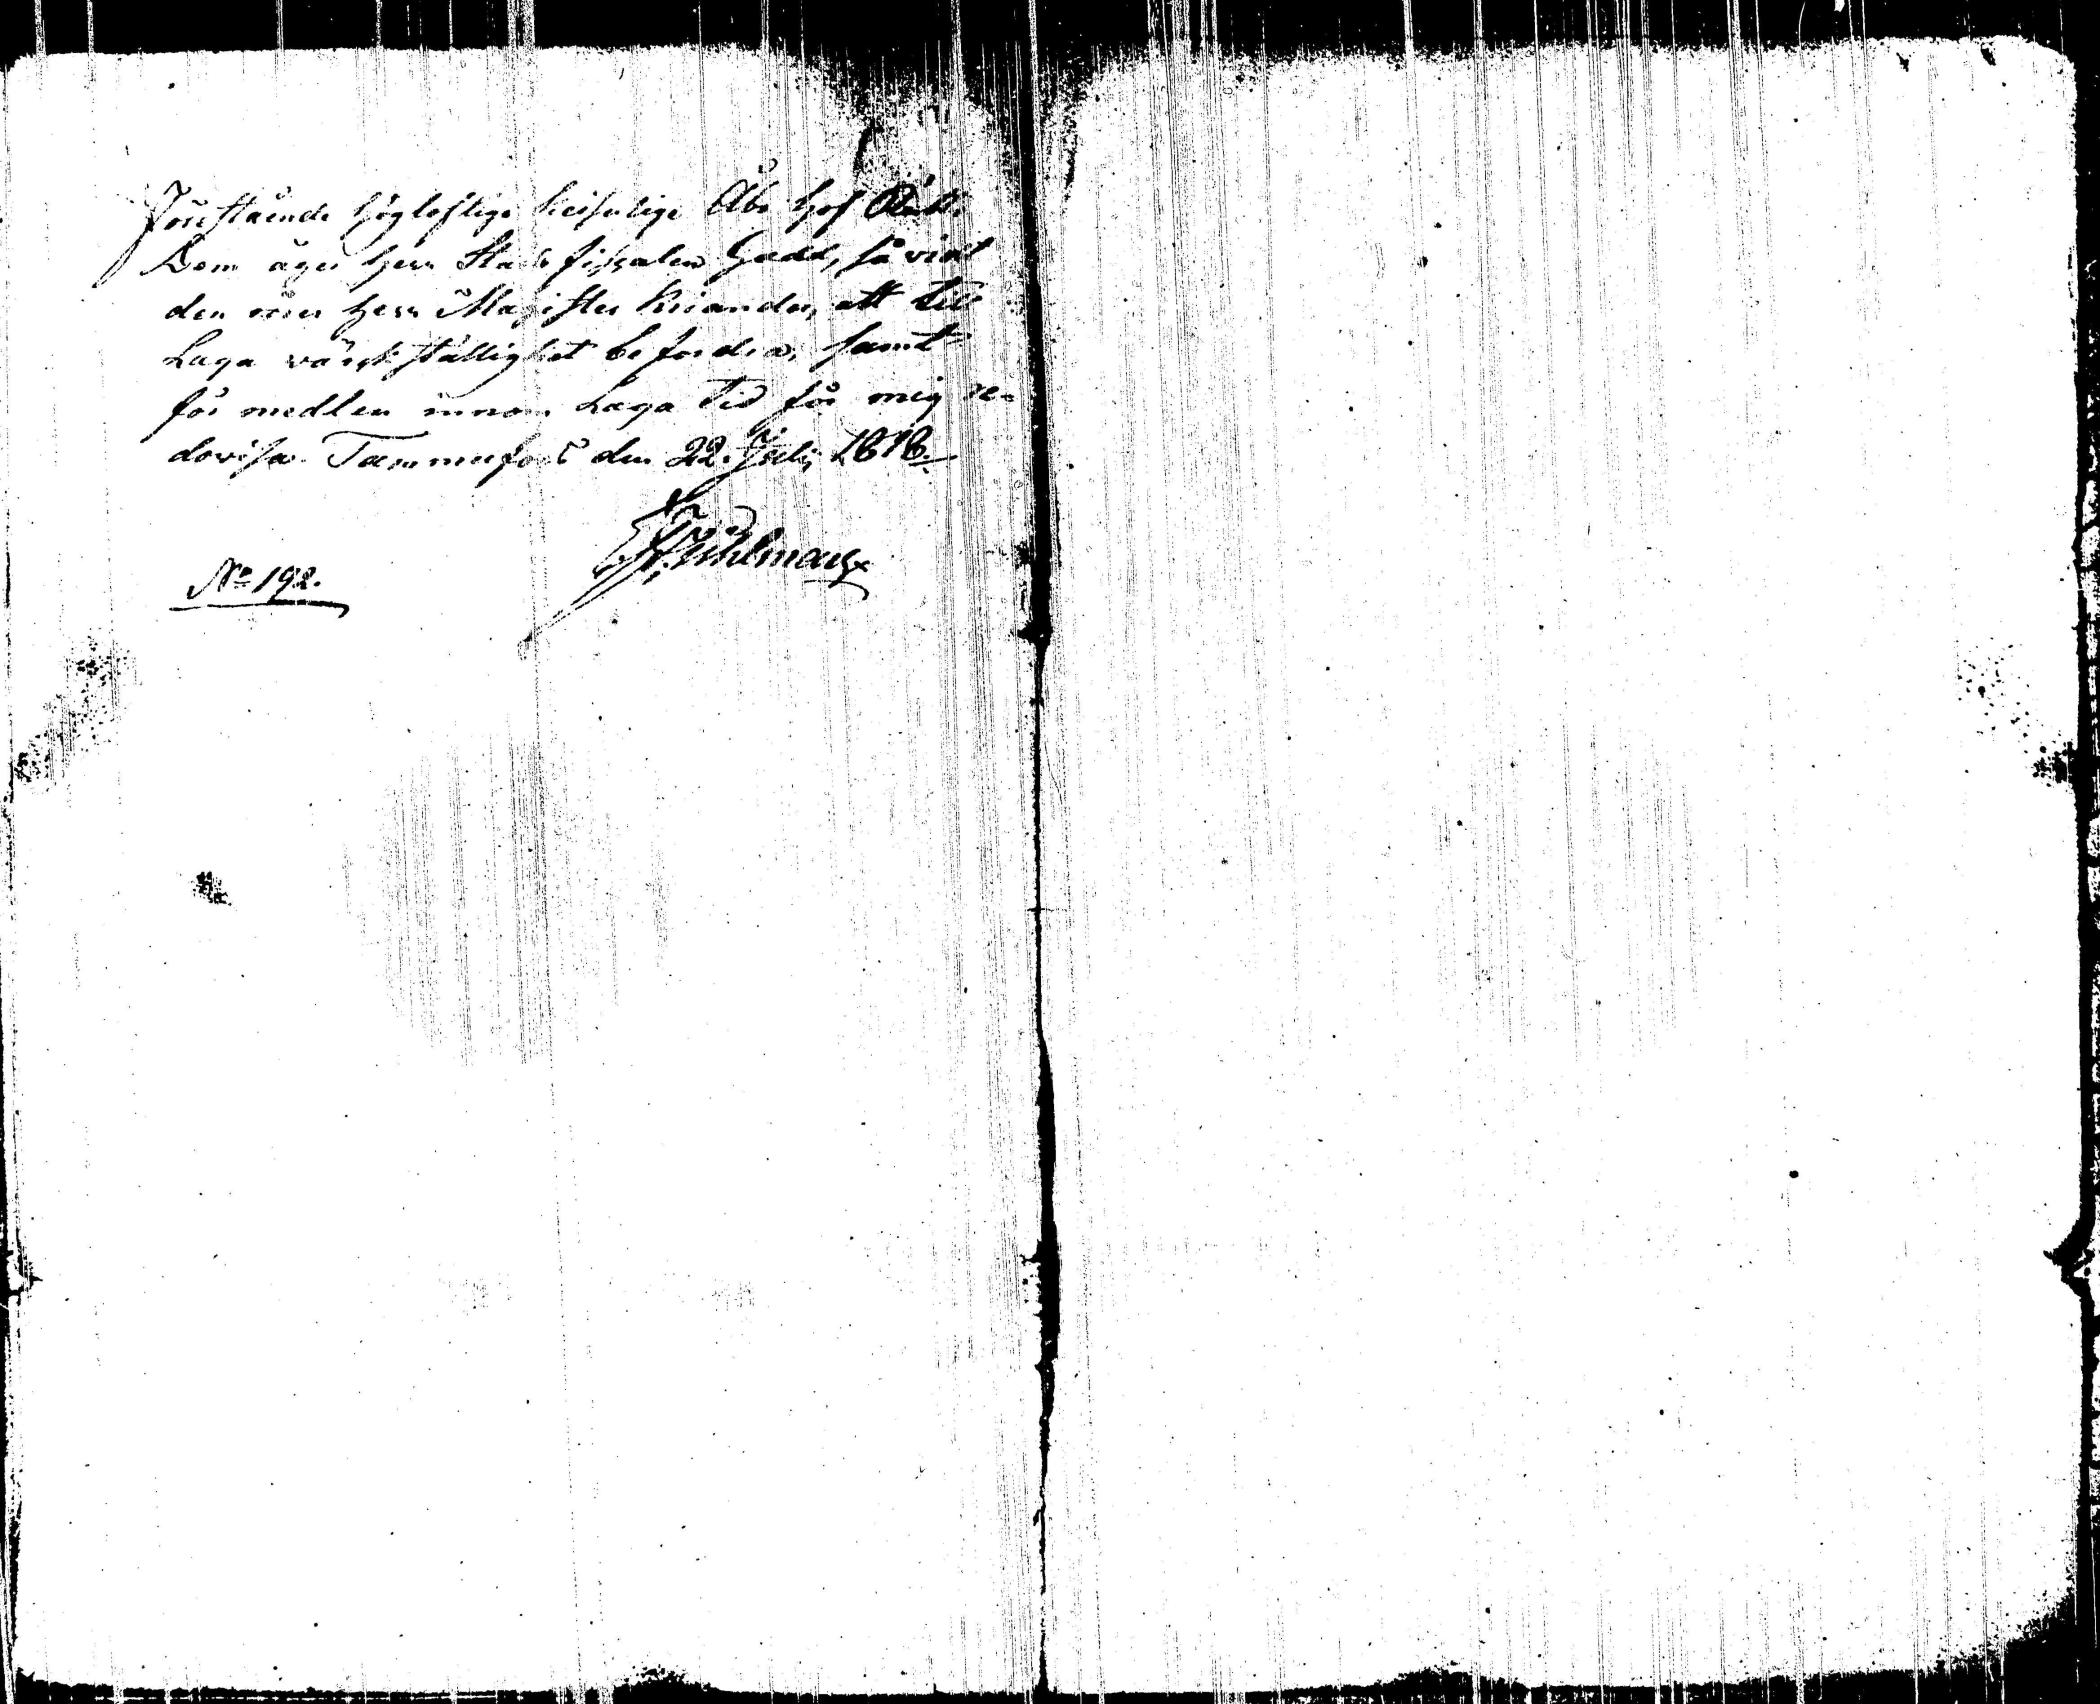 Förestående högloflige Keiserlige Åbo Hof Rätts
Dom äger Herr Stads fiskalen Gadd, så vidt
den rörer Herr Magister Kriander, att till
Laga värkställighet befordra, samt
för medlen innom Laga tid för mig re-
dovisa. Tammerfors den 22. Julij 1818.
Uhlman
No 192.